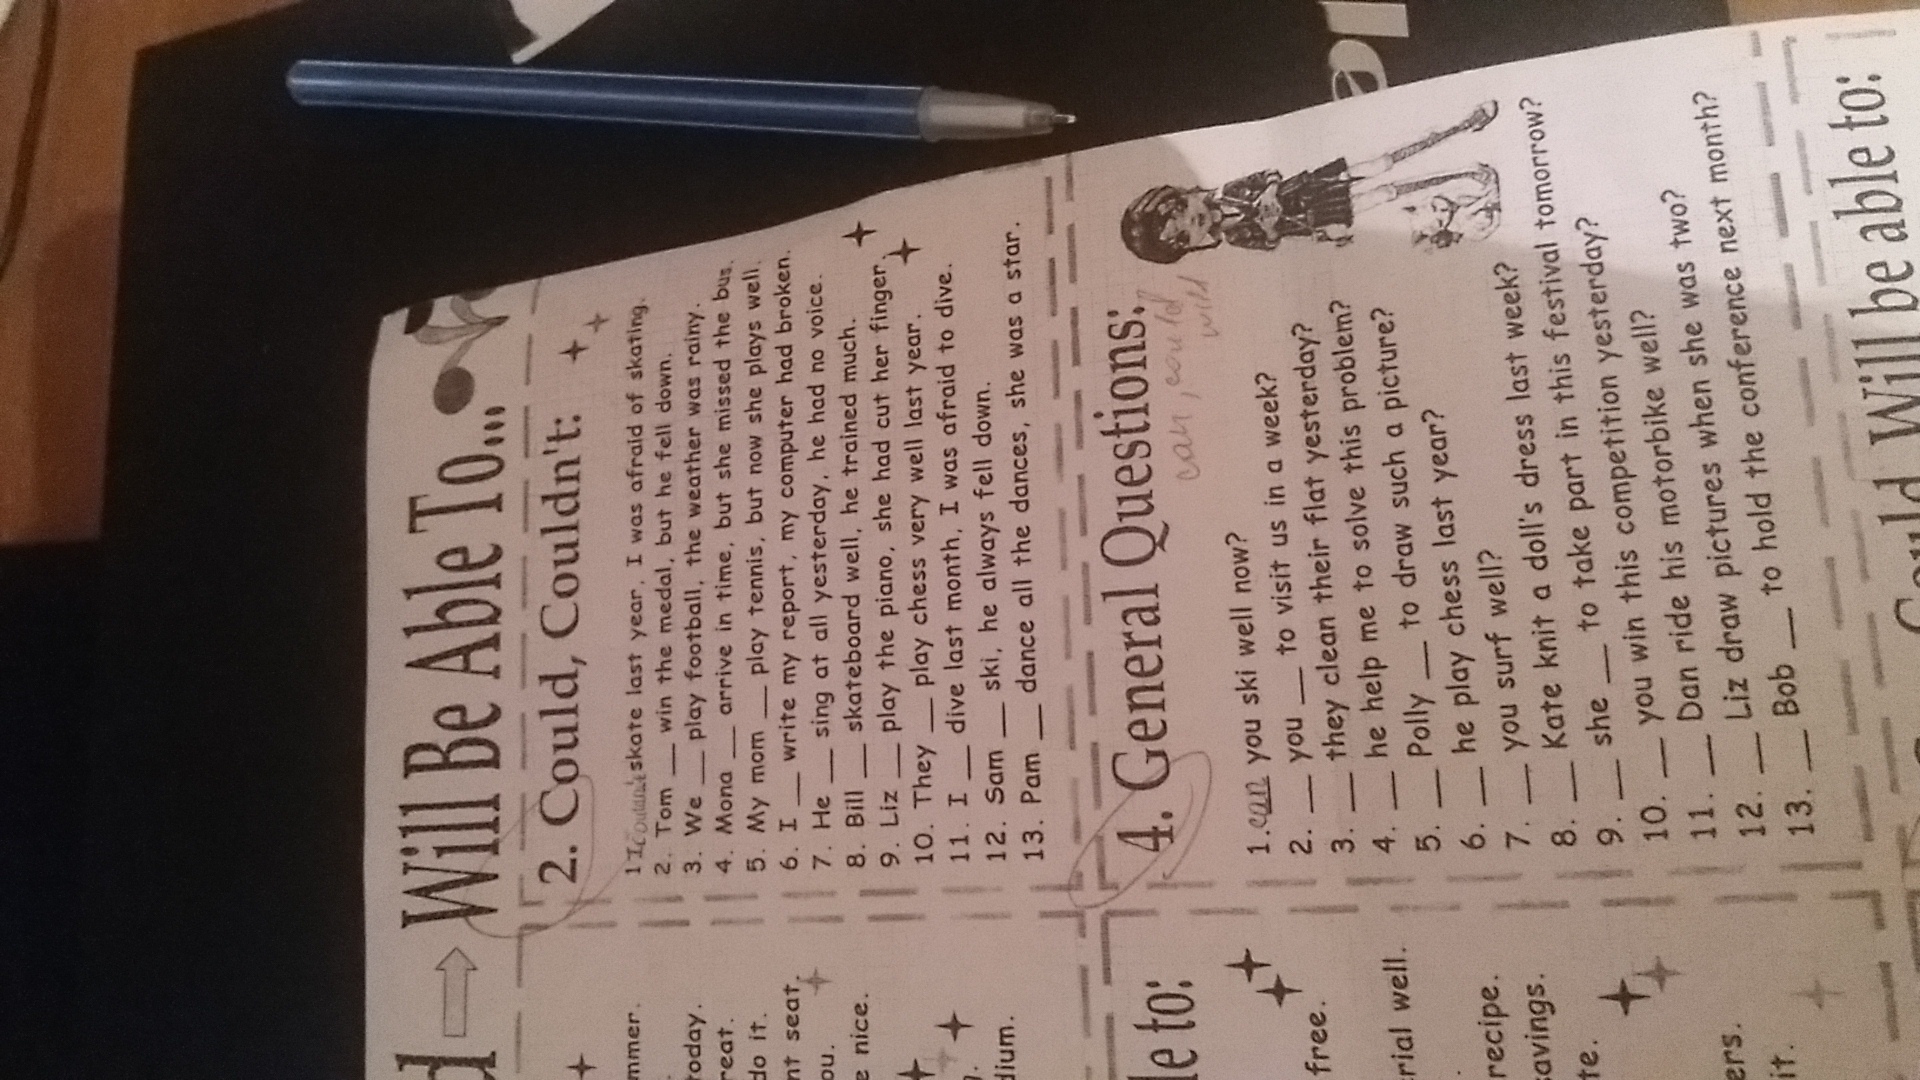 Will Be Able To...
2. Could, Couldn't:
1 I couldn't skate last year, I was afraid of skating.
2. Tom __ win the medal, but he fell down.
3. We __ play football, the weather was rainy.
4. Mona __ arrive in time, but she missed the bus.
5. My mom __ play tennis, but now she plays well.
6. I __ write my report, my computer had broken.
7. He __ sing at all yesterday, he had no voice.
8. Bill __ skateboard well, he trained much.
9. Liz __ play the piano, she had cut her finger.
10. They __ play chess very well last year.
11. I __ dive last month, I was afraid to dive.
12. Sam __ ski, he always fell down.
13. Pam __ dance all the dances, she was a star.
4. General Questions:
can, could
will
1. can you ski well now?
2. __ you __ to visit us in a week?
3. __ they clean their flat yesterday?
4. __ he help me to solve this problem?
5. __ Polly __ to draw such a picture?
6. __ he play chess last year?
7. __ you surf well?
8. __ Kate knit a doll's dress last week?
9. __ she __ to take part in this festival tomorrow?
10. __ you win this competition yesterday?
11. __ Dan ride his motorbike well?
12. __ Liz draw pictures when she was two?
13. __ Bob __ to hold the conference next month?
Will be able to:
mmer.
today.
reat.
do it.
nt seat.
ou.
e nice.
dium.
le to:
free.
rial well.
recipe.
savings.
te.
ers.
it.